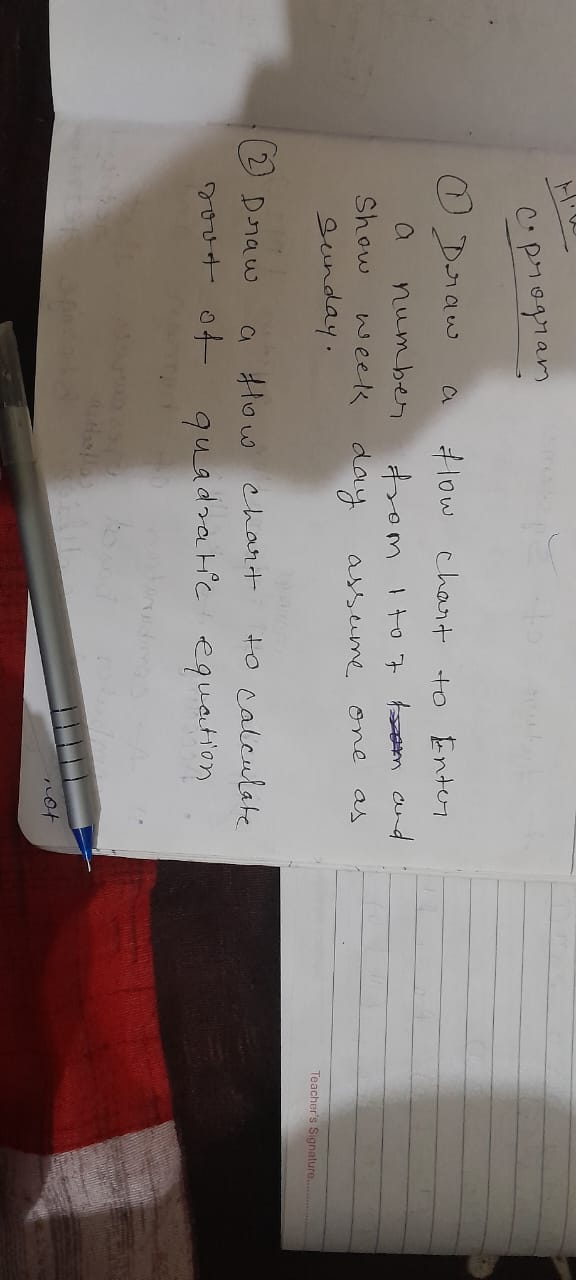 H.W
C. program
① Draw a flow chart to Enter
a number from 1 to 7 and
Show week day assume one as
Sunday.
② Draw a flow chart to calculate
root of quadratic equation
not
Teacher's Signature